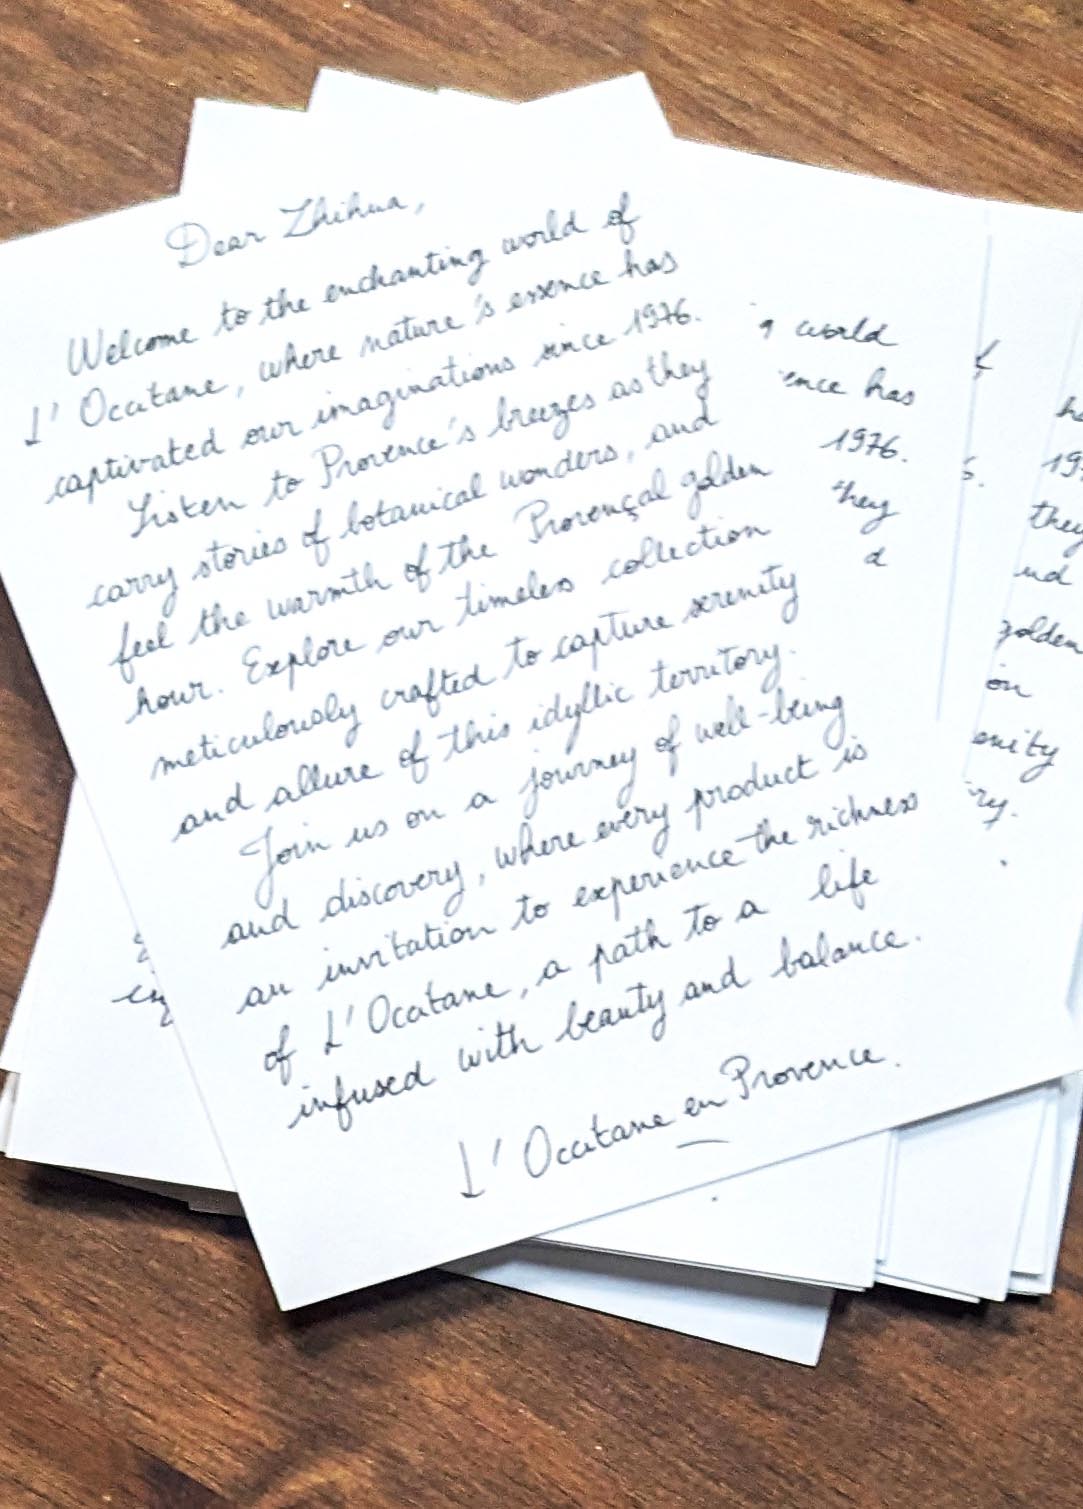 Dear Zhihua,
Welcome to the enchanting world of
L'Occitane, where nature's essence has
captivated our imaginations since 1976.
Listen to Provence's breezes as they
carry stories of botanical wonders, and
feel the warmth of the Provençal golden
hour. Explore our timeless collection
meticulously crafted to capture serenity
and allure of this idyllic territory.
Join us on a journey of well-being
and discovery, where every product is
an invitation to experience the richness
of L'Occitane, a path to a life
infused with beauty and balance.
L'Occitane en Provence.
world
ence has
1976.
they
d
they
nd
golden
on
enity
ry.